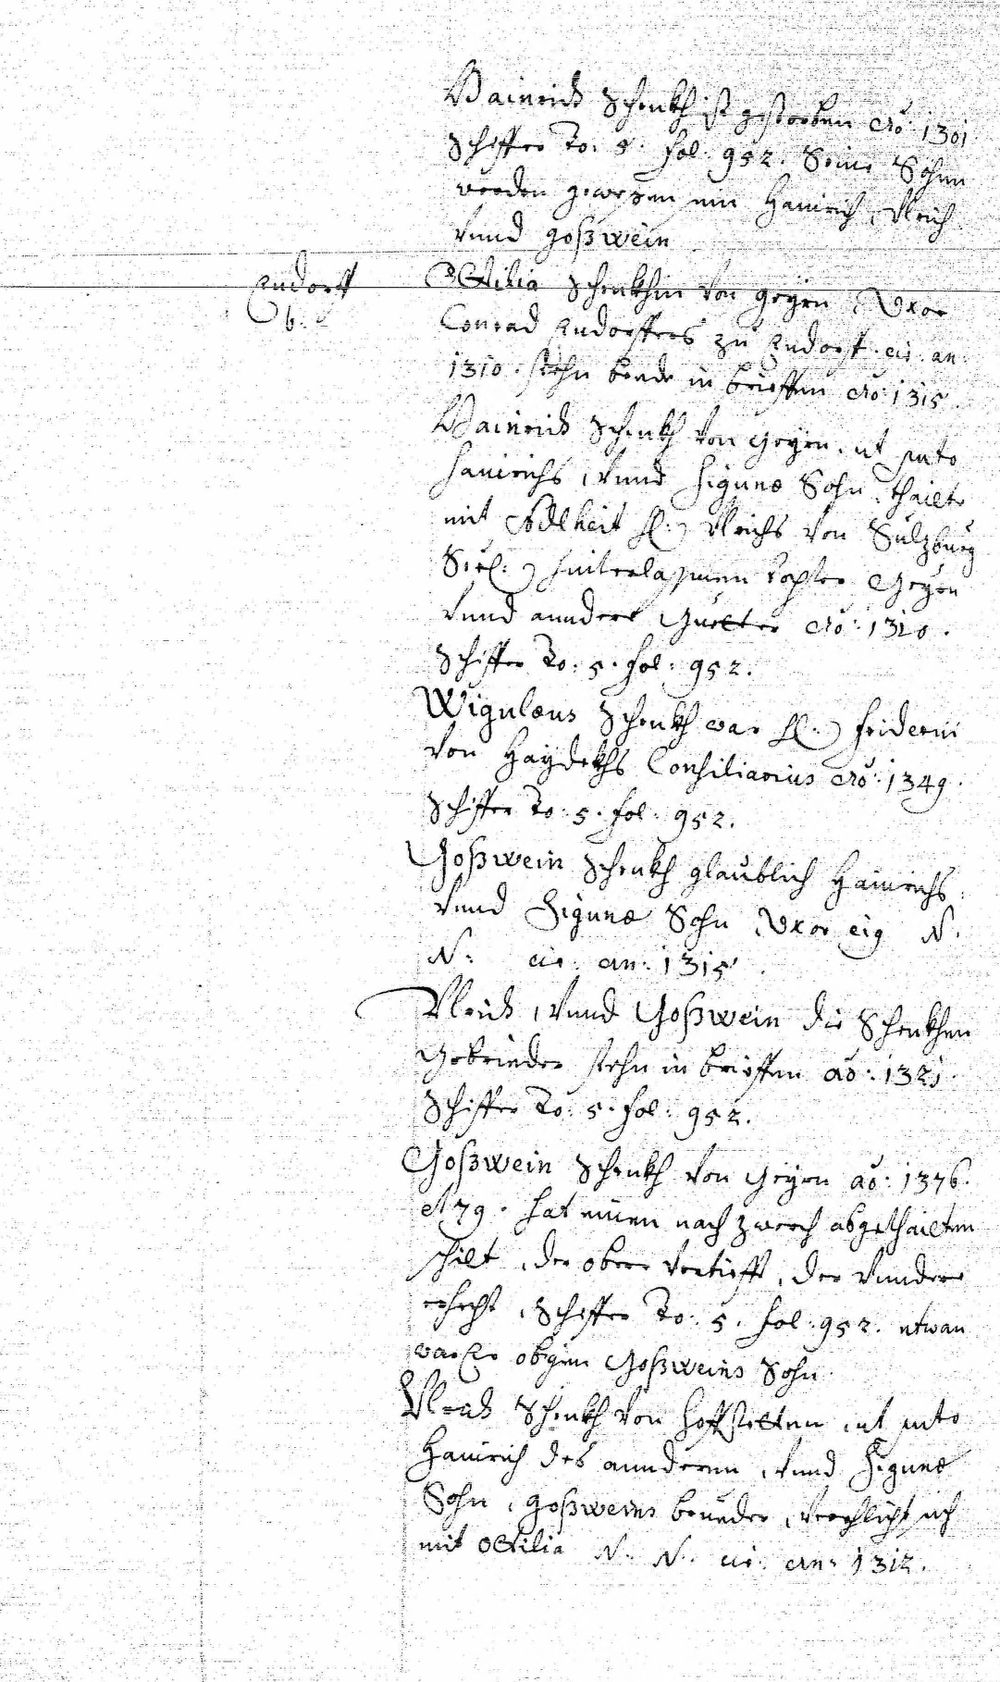 Hainrich Schenkh ist gestorben Aõ: 1301
Schiffer To: 5. fol: 952. Seine Söhnn
werden gewesen ein Hainrich, Vlrich
vnnd Goßwein
Endorff
b:
Ottilia Schenkhin von Geyrn, Vxor
Conrad Endorffers zu Endorff. cir. an.
1310. stehn beede in brieffen Aõ: 1315
Hainrich Schenkh von Geyrn, ut puto
Hainrichs, vnnd Sigunæ Sohn, thailte
mit Adlheit H: Vlrichs von Sulzburg
Seel: hinterlaßnnen Tochter Geyrn
vnnd anndere Güetter Aõ: 1310.
Schiffer To: 5. fol: 952.
Wigulæus Schenkh war H: Friderici
von Haydekhs Consiliarius Aõ: 1349.
Schiffer To: 5. fol: 952.
Goßwein Schenkh glaublich Hainrichs
vnnd Sigunæ Sohn, Vxor eig N.
N: cir: an: 1315.
Vlrich, vnnd Goßwein die Schenkhen
Gebrüeder stehn in brieffen aõ: 1321.
Schiffer To: 5. fol: 952.
Goßwein Schenkh von Geyrn aõ: 1376.
et 79. hat einen nach zwerch abgethailten
schilt, der obere vertiefft, der vndere
erhecht, Schiffer To: 5. fol: 952. etwan
war Er obigen Goßweins Sohn.
Vlrich Schenkh von Hoffstetten, ut puto
Hainrich des annderen, vnnd Sigunæ
Sohn, Goßweins brueder, verehlicht sich
mit Ottilia N. N. cir: an: 1312.